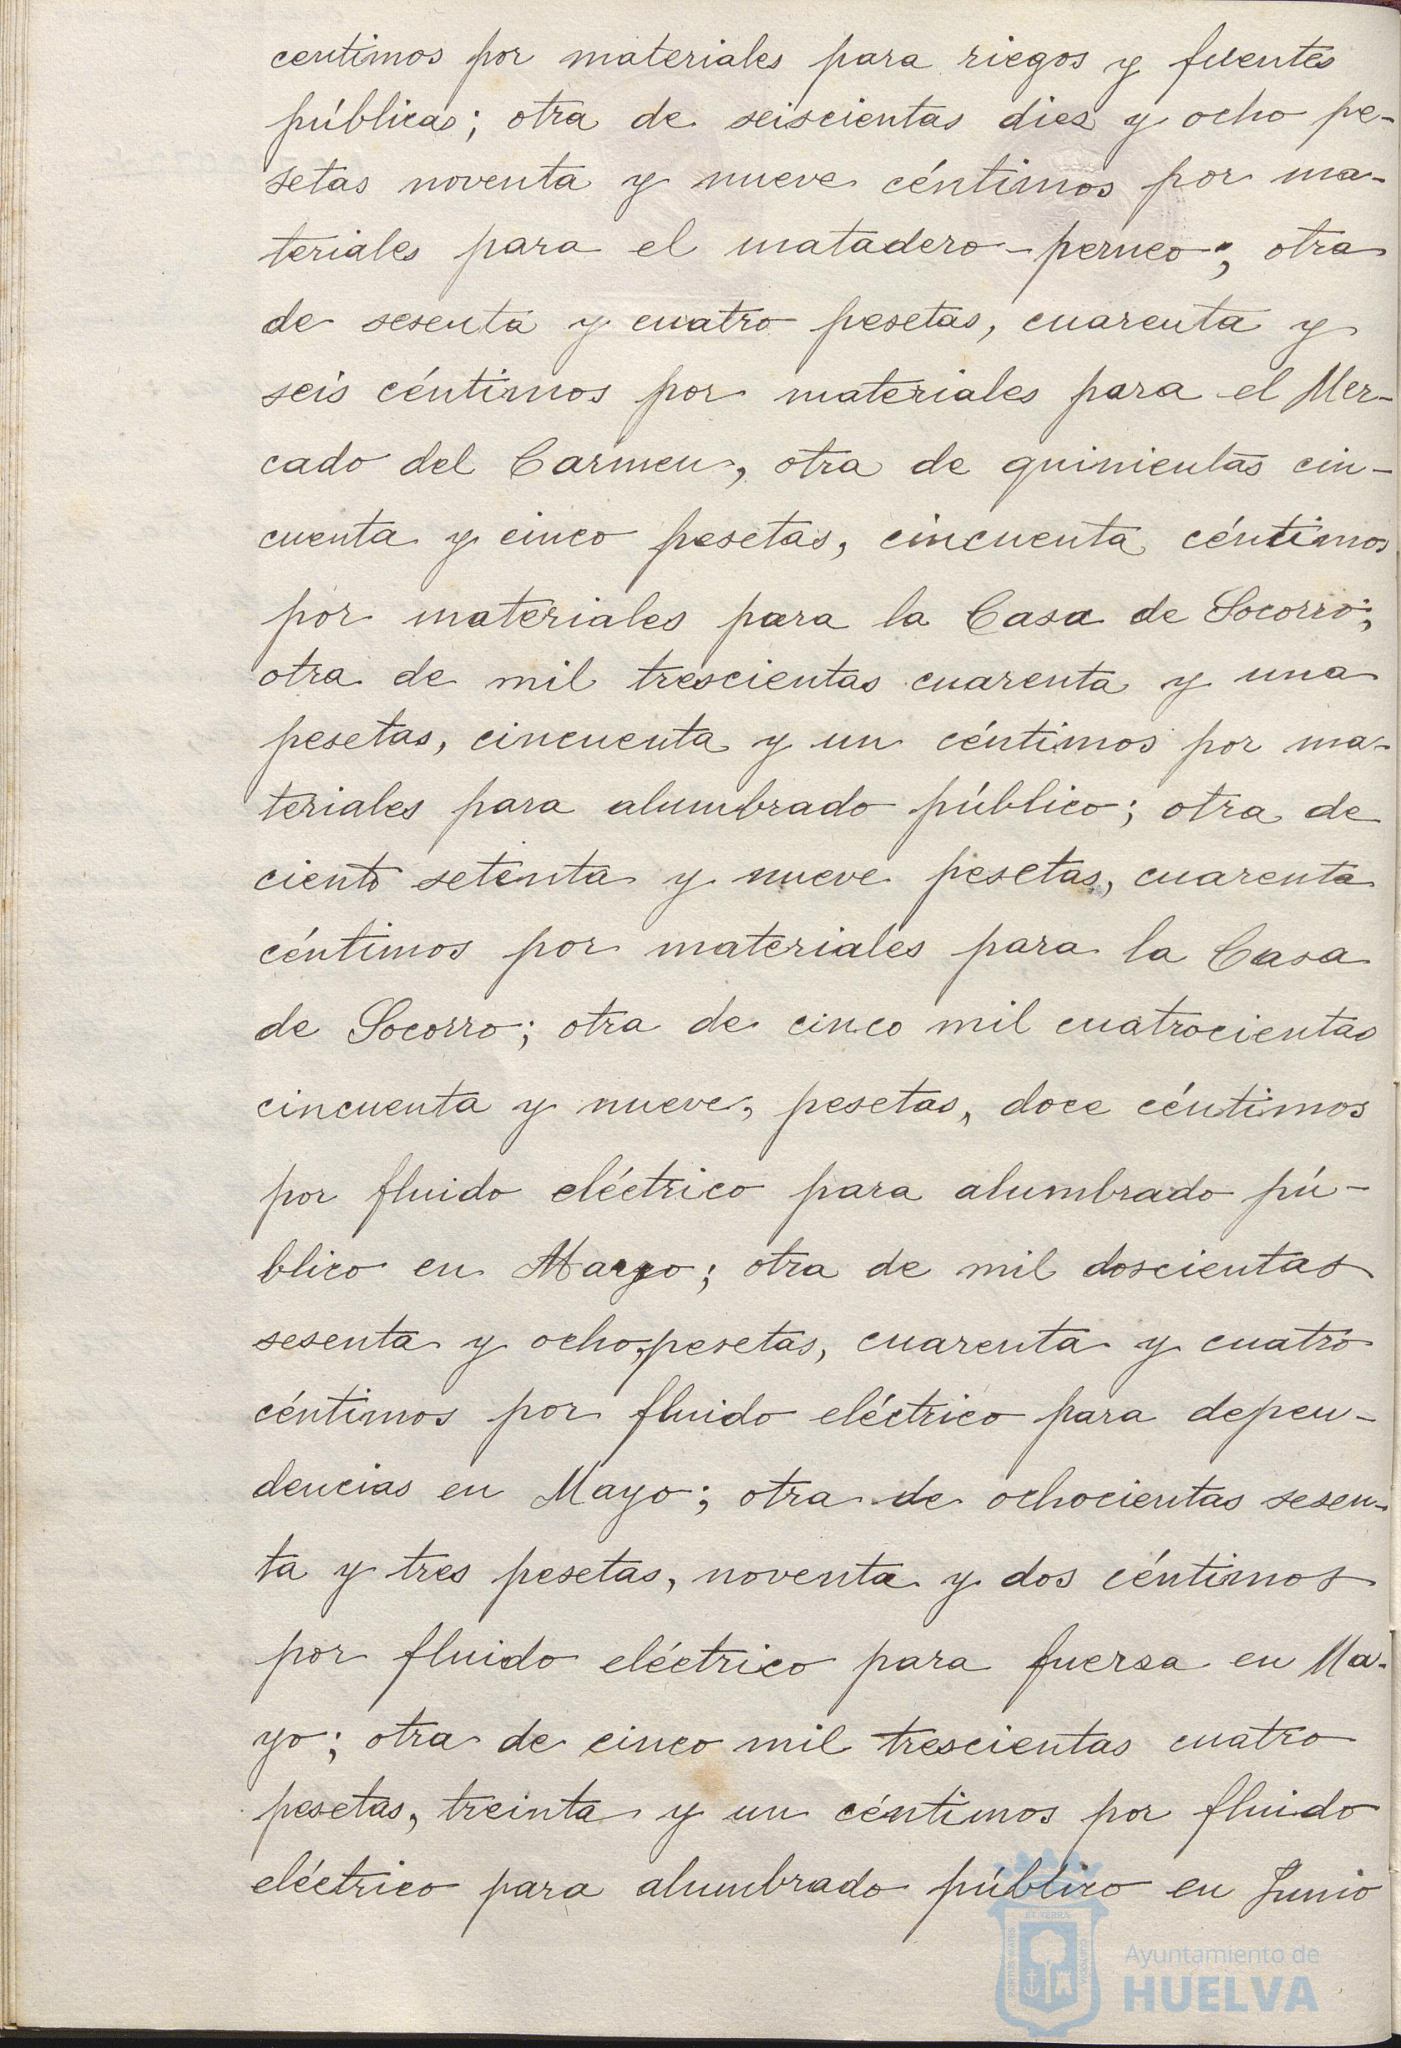 centimos por materiales para riegos y fuentes
públicas; otra de seiscientas diez y ocho pe-
setas noventa y nueve céntimos por ma-
teriales para el matadero-perneo; otra
de sesenta y cuatro pesetas, cuarenta y
seis céntimos por materiales para el Mer-
cado del Carmen, otra de quinientas cin-
cuenta y cinco pesetas, cincuenta céntimos
por materiales para la Casa de Socorro;
otra de mil trescientas cuarenta y una
pesetas, cincuenta y un céntimos por ma-
teriales para alumbrado público; otra de
ciento setenta y nueve pesetas, cuarenta
céntimos por materiales para la Casa
de Socorro; otra de cinco mil cuatrocientas
cincuenta y nueve, pesetas, doce céntimos
por fluido eléctrico para alumbrado pú-
blico en Mayo; otra de mil doscientas
sesenta y ocho, pesetas, cuarenta y cuatro
céntimos por fluido eléctrico para depen-
dencias en Mayo; otra de ochocientas sesen-
ta y tres pesetas, noventa y dos céntimos
por fluido eléctrico para fuersa en Ma-
yo; otra de cinco mil trescientas cuatro
pesetas, treinta y un céntimos por fluido
eléctrico para alumbrado público en Junio
Ayuntamiento de
HUELVA